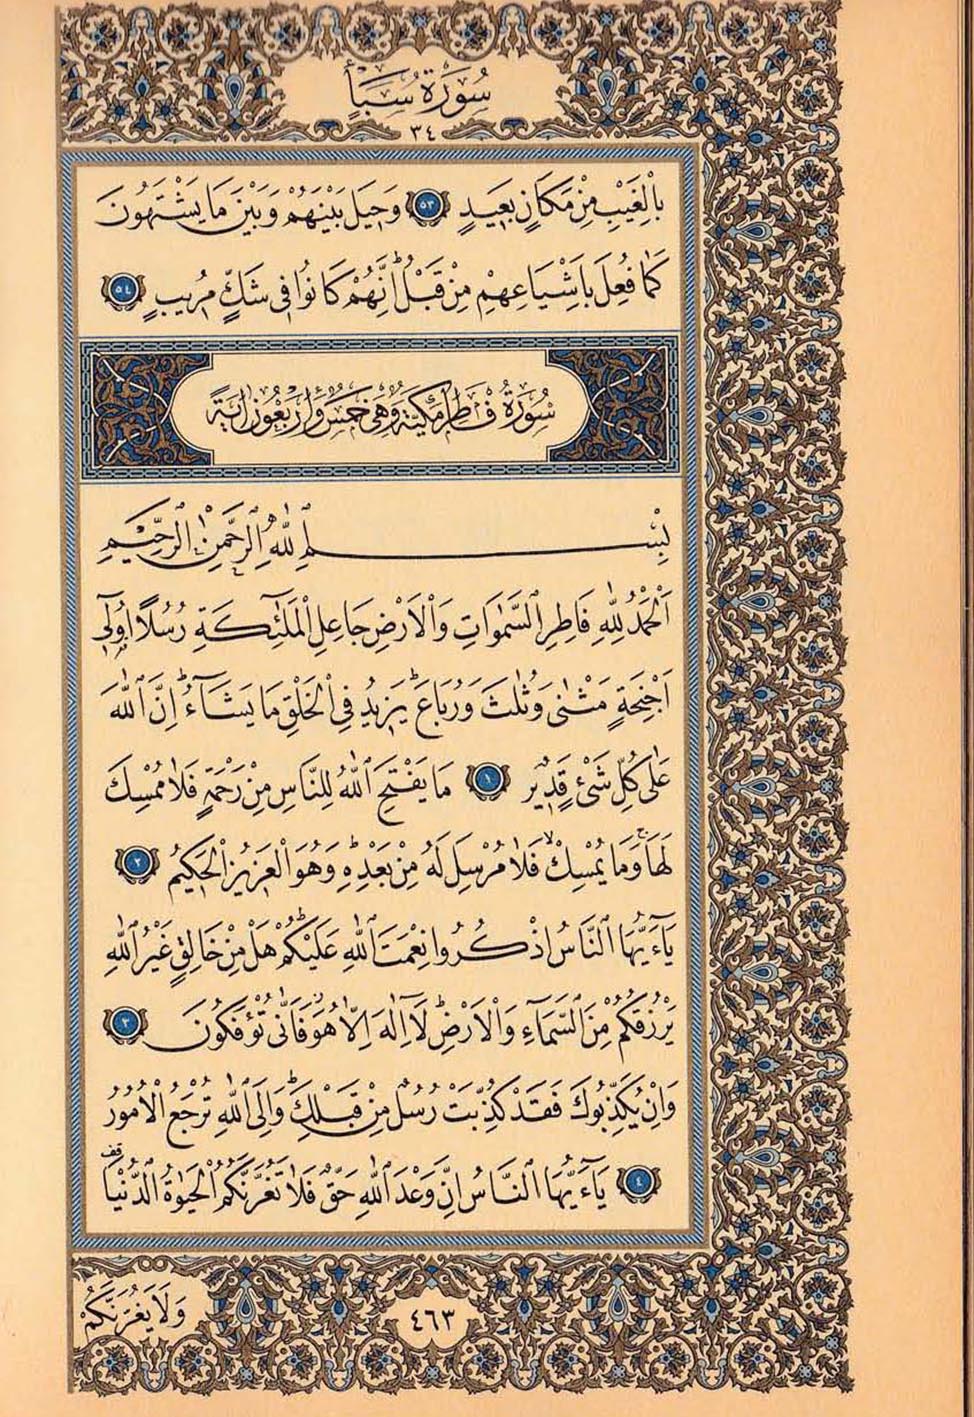 سُورَةُ سَبَأٍ
٣٤
بِالْغَيْبِ مِنْ مَكَانٍ بَعِيدٍ ٥٣ وَحِيلَ بَيْنَهُمْ وَبَيْنَ مَا يَشْتَهُونَ
كَمَا فُعِلَ بِاَشْيَاعِهِمْ مِنْ قَبْلُ اِنَّهُمْ كَانُوا فِى شَكٍّ مُرِيبٍ ٥٤
سُورَةُ فَاطِرٍ مَكِّيَّةٌ وَهِىَ خَمْسٌ وَاَرْبَعُونَ اٰيَةً
بِسْمِ اللّٰهِ الرَّحْمٰنِ الرَّحِيمِ
اَلْحَمْدُ لِلّٰهِ فَاطِرِ السَّمٰوَاتِ وَالْاَرْضِ جَاعِلِ الْمَلٰٓئِكَةِ رُسُلًا اُو۬لٓى
اَجْنِحَةٍ مَثْنٰى وَثُلٰثَ وَرُبَاعَ يَزِيدُ فِى الْخَلْقِ مَا يَشَٓاءُ اِنَّ اللّٰهَ
عَلٰى كُلِّ شَىْءٍ قَدِيرٌ ١ مَا يَفْتَحِ اللّٰهُ لِلنَّاسِ مِنْ رَحْمَةٍ فَلَا مُمْسِكَ
لَهَا وَمَا يُمْسِكْ فَلَا مُرْسِلَ لَهُ مِنْ بَعْدِهِ وَهُوَ الْعَزِيزُ الْحَكِيمُ ٢
يَٓا اَيُّهَا النَّاسُ اذْكُرُوا نِعْمَتَ اللّٰهِ عَلَيْكُمْ هَلْ مِنْ خَالِقٍ غَيْرُ اللّٰهِ
يَرْزُقُكُمْ مِنَ السَّمَٓاءِ وَالْاَرْضِ لَٓا اِلٰهَ اِلَّا هُوَ فَاَنّٰى تُؤْفَكُونَ ٣
وَاِنْ يُكَذِّبُوكَ فَقَدْ كُذِّبَتْ رُسُلٌ مِنْ قَبْلِكَ وَاِلَى اللّٰهِ تُرْجَعُ الْاُمُورُ
٤ يَٓا اَيُّهَا النَّاسُ اِنَّ وَعْدَ اللّٰهِ حَقٌّ فَلَا تَغُرَّنَّكُمُ الْحَيٰوةُ الدُّنْيَا
وَلَا يَغُرَّنَّكُمْ
٤٦٣